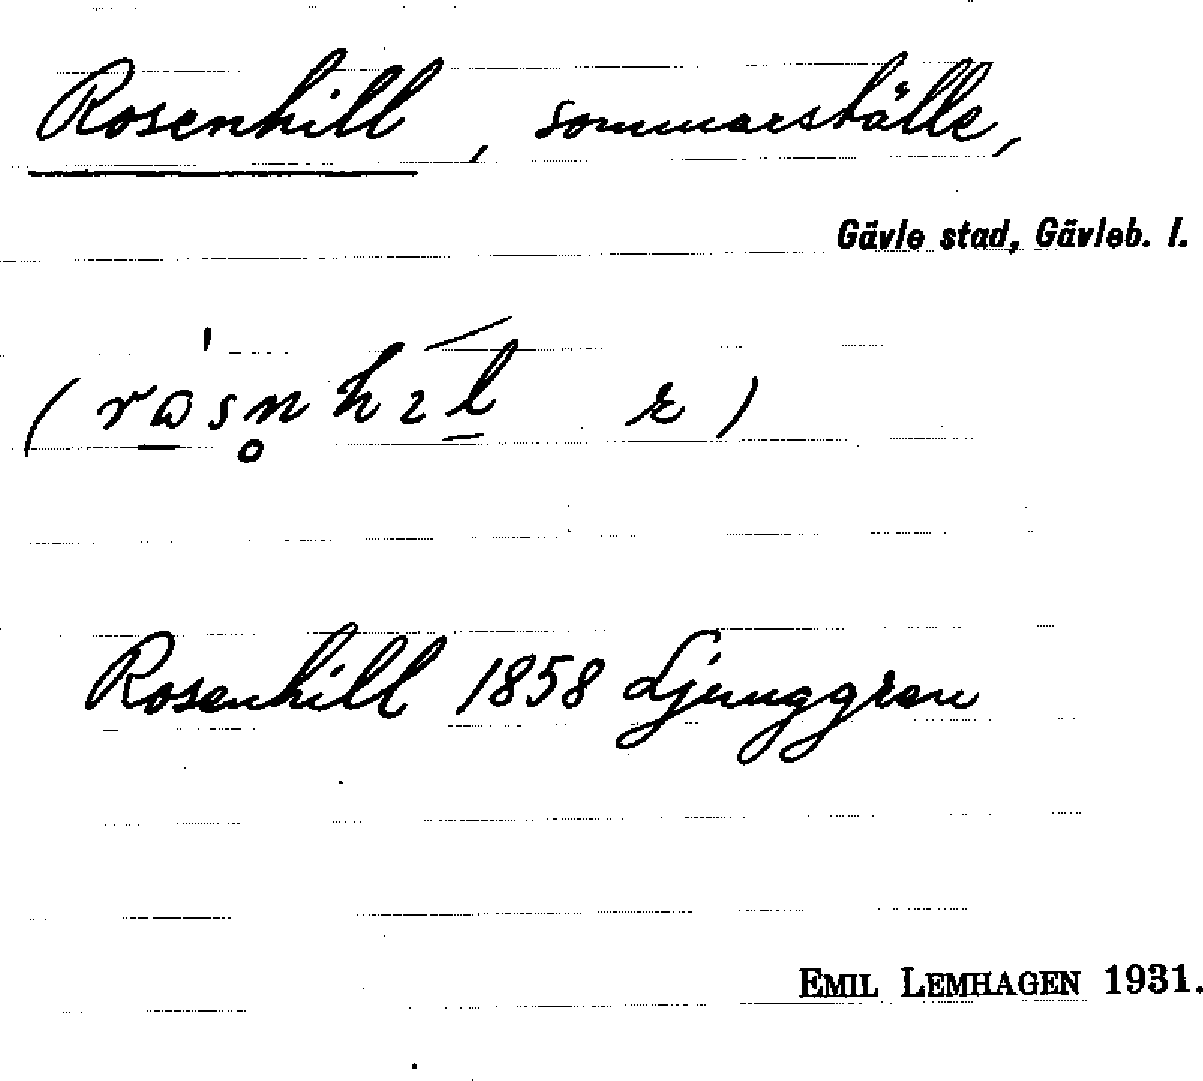 Rosenhill, sommarställe,
Gävle stad, Gävleb. l.
Rosenhill 1858 Ljunggren
EMIL LEMHAGEN 1931.